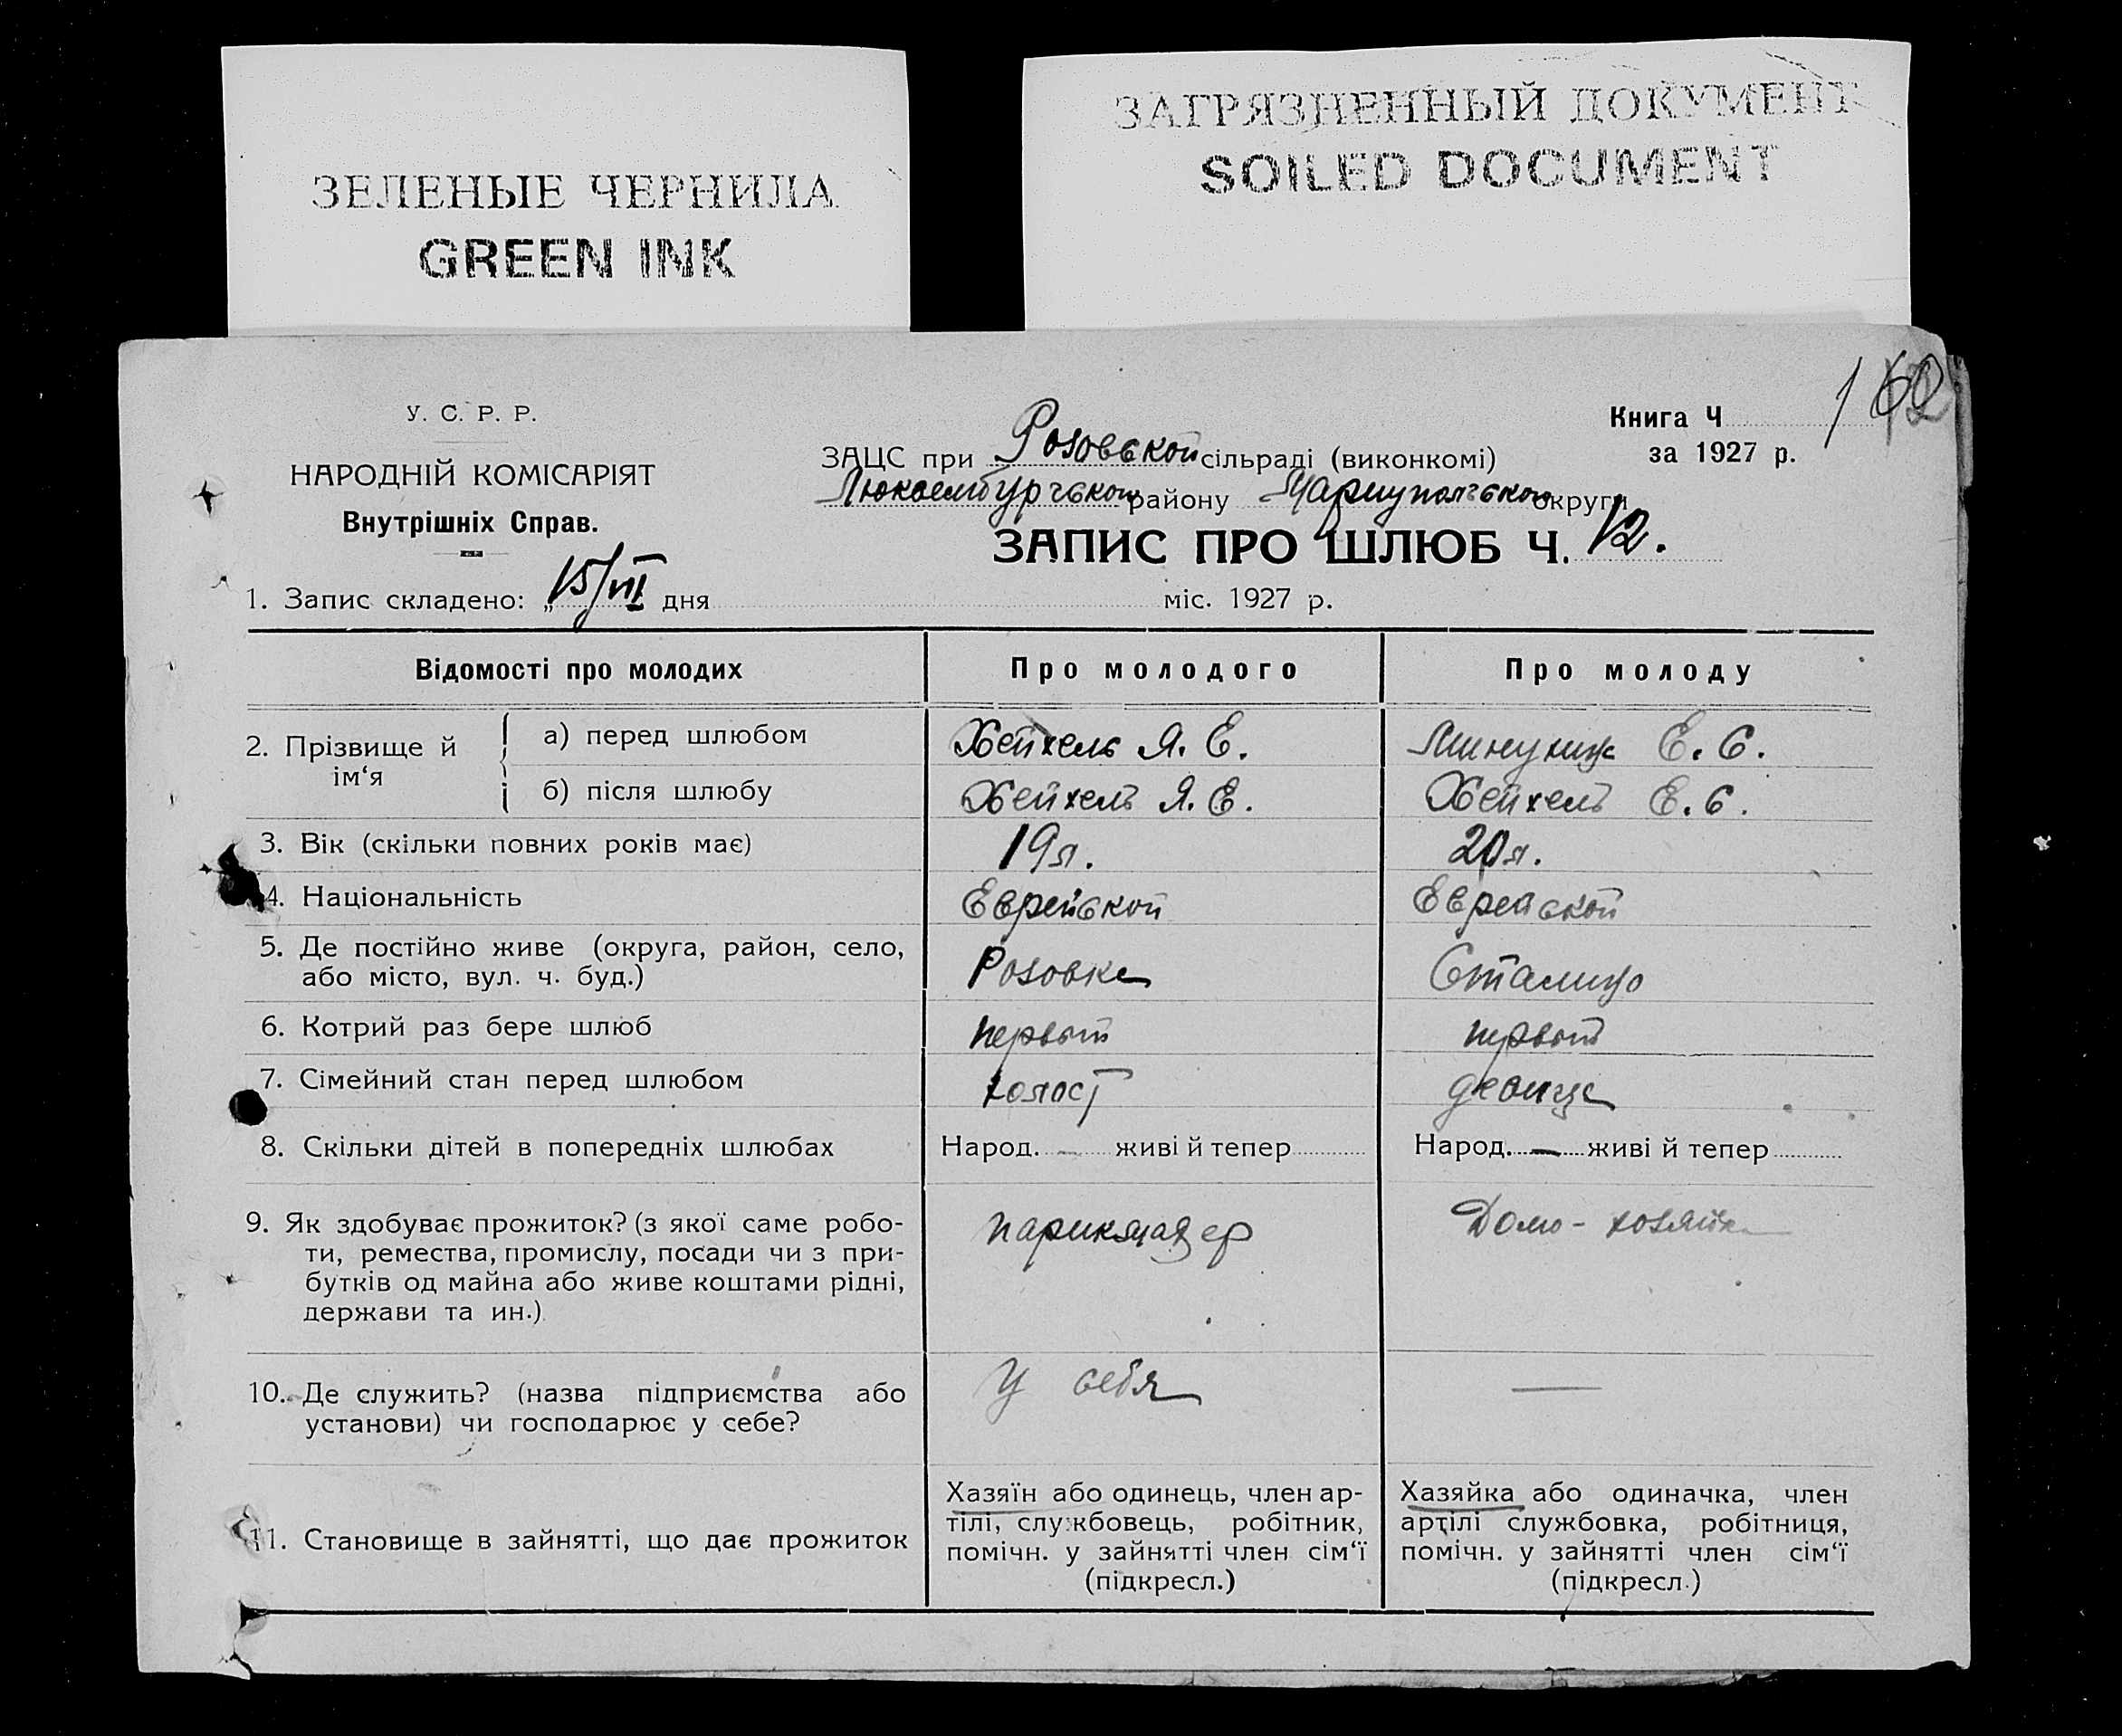 ЗЕЛЕНЫЕ ЧЕРНИЛА
GREEN INK
ЗАГРЯЗНЕННЫЙ ДОКУМЕНТ
SOILED DOCUMENT
У. С. Р. Р.
НАРОДНІЙ КОМІСАРІЯТ
Внутрішніх Справ.
Книга Ч
за 1927 р.
ЗАЦС при Розовской сільраді (виконкомі)
району округи
ЗАПИС ПРО ШЛЮБ Ч. 12.
1. Запис складено: „15/VII дня міс. 1927 р.
Відомості про молодих Про молодого Про молоду
2. Прізвище й ім‘я а) перед шлюбом Хейхель Я. Е. Е. С.
б) після шлюбу Хейхель Я. Е. Хейхель Е. С.
3. Вік (скільки повних років має) 19 л. 20 л.
4. Національність Еврейской Еврейской
5. Де постійно живе (округа, район, село, або місто, вул. ч. буд.) Розовка Сталино
6. Котрий раз бере шлюб первый первый
7. Сімейний стан перед шлюбом холост девица
8. Скільки дітей в попередніх шлюбах Народ. — живі й тепер Народ. — живі й тепер
9. Як здобуває прожиток? (з якої саме робо-
ти, ремества, промислу, посади чи з при-
бутків од майна або живе коштами рідні,
держави та ин.)
парикмахер
Домо-хозяйка
10. Де служить? (назва підприємства або
установи) чи господарює у себе?
У себя
—
11. Становище в зайнятті, що дає прожиток
Хазяїн або одинець, член ар-
тілі, службовець, робітник,
помічн. у зайнятті член сім‘ї
(підкресл.)
Хазяйка або одиначка, член
артілі службовка, робітниця,
помічн. у зайнятті член сім‘ї
(підкресл.)